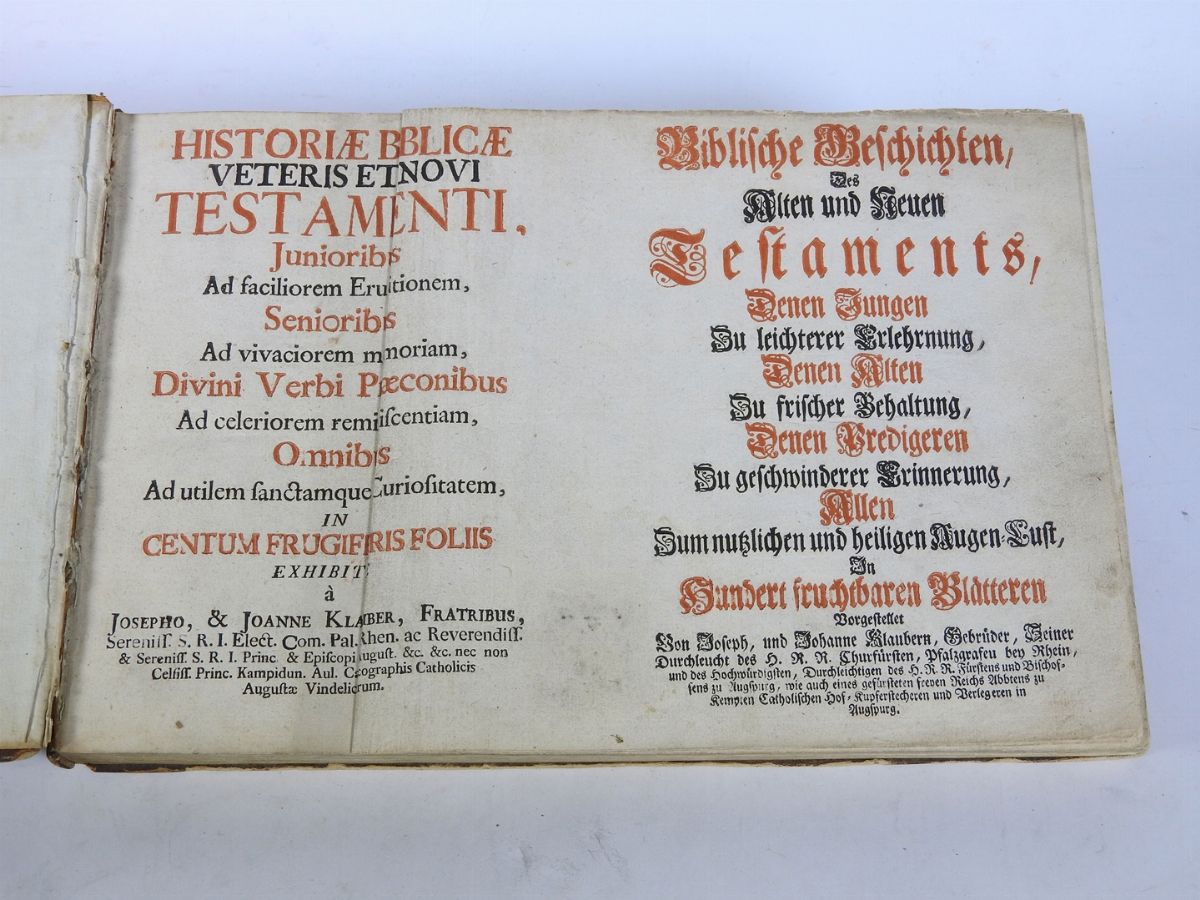 HISTORIÆ BBLICÆ
VETERIS ETNOVI
TESTAMENTI,
Junioribs
Ad faciliorem Eruitionem,
Senioribs
Ad vivaciorem mnoriam,
Divini Verbi Pæconibus
Ad celeriorem remiiſcentiam,
Omnibs
Ad utilem ſanctamque Curioſitatem,
IN
CENTUM FRUGIFRIS FOLIIS
EXHIBIT
à
JOSEPHO, & JOANNE KLABER, FRATRIBUS,
Sereniſſ. S. R. I. Elect. Com. Pal. Rhen. ac Reverendiſſ.
& Sereniſſ. S. R. I. Princ. & Epiſcopi August. &c. &c. nec non
Celſiſſ. Princ. Kampidun. Aul. Cæographis Catholicis
Auguſtæ Vindelicrum.
Bibliſche Geſchichten,
Des
Alten und Neuen
Teſtaments,
Denen Jungen
Zu leichterer Erlehrnung,
Denen Alten
Zu friſcher Behaltung,
Denen Predigeren
Zu geſchwinderer Erinnerung,
Allen
Zum nutzlichen und heiligen Augen-Luſt,
In
Hundert fruchtbaren Blätteren
Vorgeſtellet
Von Joseph, und Johanne Klaubern, Gebrüder, Seiner
Durchleucht des H. R. R. Churfürſten, Pfalzgrafen bey Rhein,
und des Hochwürdigſten, Durchleichtigen des H. R. R. Fürſtens und Biſchof-
fens zu Augſpurg, wie auch eines gefürſteten freyen Reichs Abbtens zu
Kempten Catholiſchen Hof-Kupferſtecheren und Verlegeren in
Augſpurg.